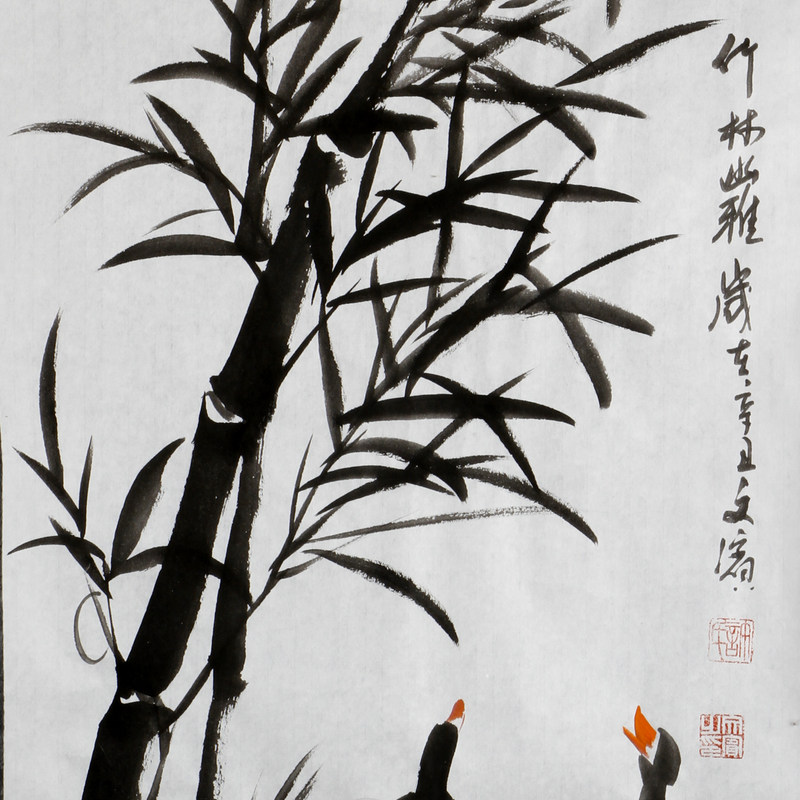 竹林幽雅歲在辛丑文濱